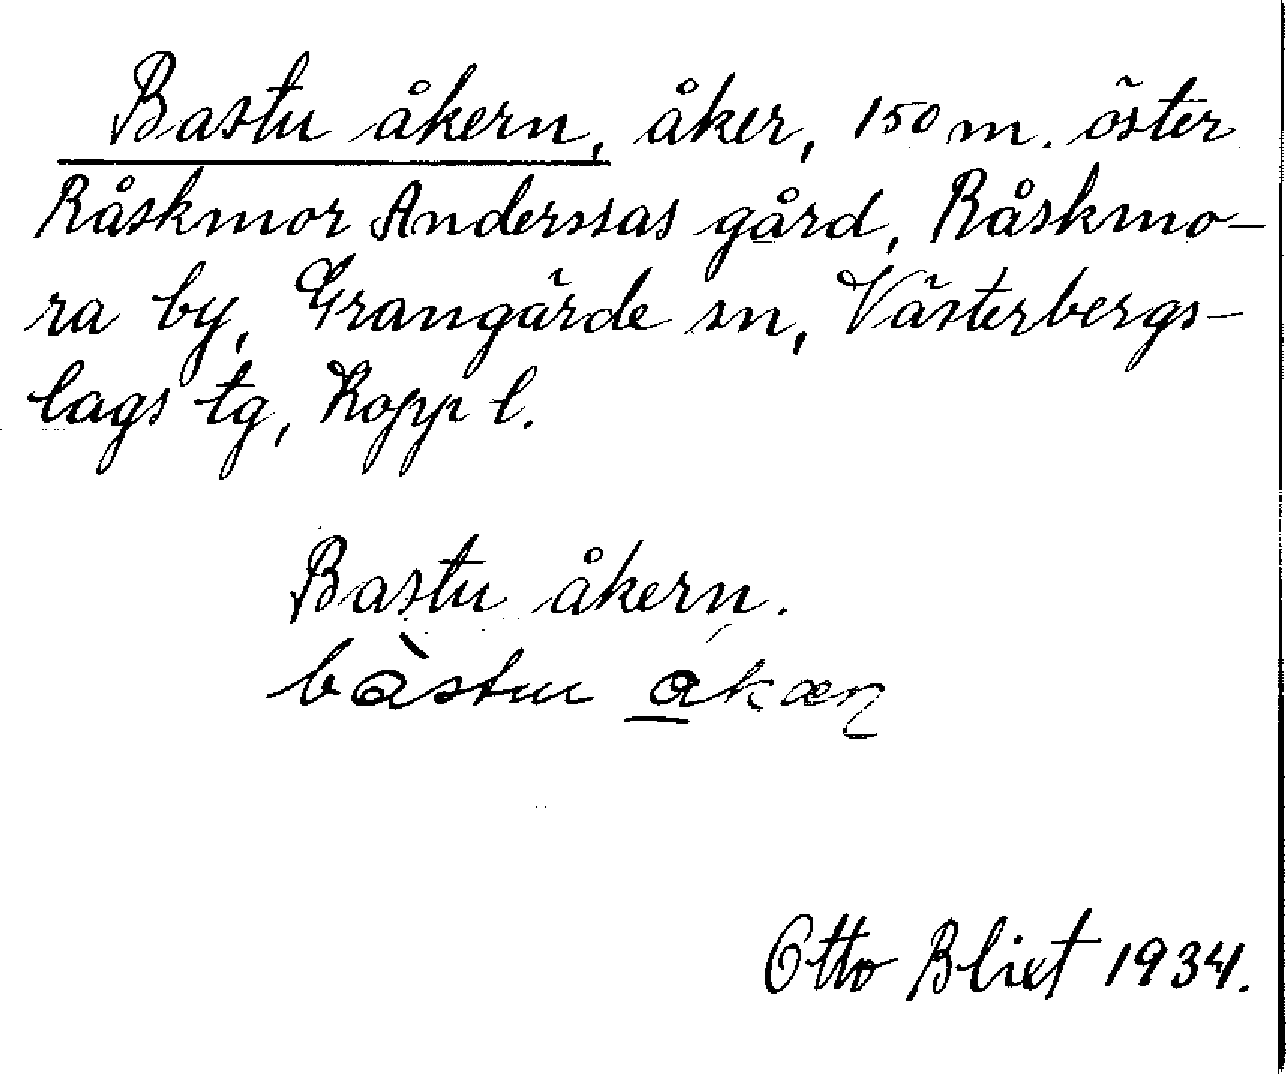 Bastu åkern, åker, 150 m. öster
Råskmor Anderssas gård, Råskmo-
ra by, Grangärde sn, Västerbergs-
lags tg, Kopp l.
Bastu åkern.
bàstu a̲kæṇ
Otto Blixt 1934.